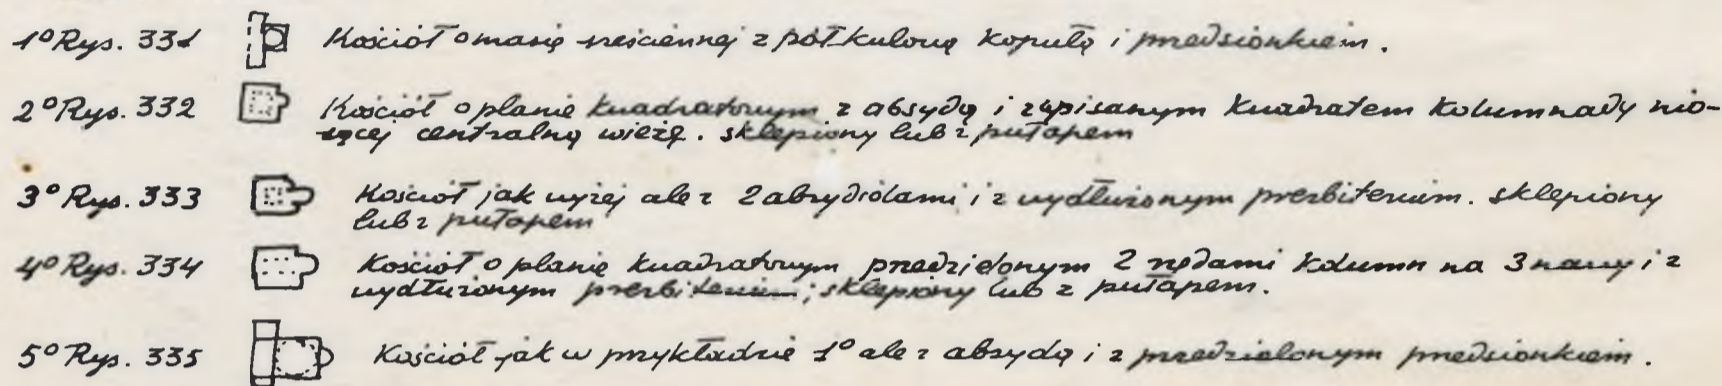 1° Rys. 331 Kościół o masię sześciennej z półkulową kopułą i przedsionkiem.
2° Rys. 332 Kościół o planie kwadratowym z absydą i wpisanym kwadratem kolumnady nio-
sącej centralną wieżę. sklepiony lub z pułapem
3° Rys. 333 Kościół jak wyżej ale z 2 absydiolami i z wydłużonym prezbiterium. sklepiony
lub z pułapem
4° Rys. 334 Kościół o planie kwadratowym przedzielonym 2 rzędami kolumn na 3 nawy i z
wydłużonym prezbiterium; sklepiony lub z pułapem.
5° Rys. 335 Kościół jak w przykładzie 1° ale z absydą i z przedzielonym przedsionkiem.